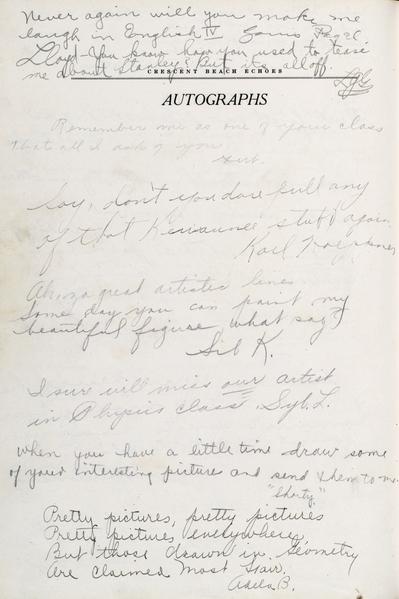 Never again will you make me
laugh in English IV
Lloyd - You know how you used to tease
me about Stanley? But its all off.
CRESCENT BEACH ECHOES
AUTOGRAPHS
Remember me as one of your class
That all I ask of you
Say, don't you dare pull any
of that Kewaunee stuff again.
Karl
great artistic lines
Some day you can paint my
beautiful figure, what say?
Sib K.
I sure will miss our artist
in Physics class. Syb. L.
When you have a little time draw some
of your interesting pictures and send them to me.
"Shorty"
Pretty pictures, pretty pictures
Pretty pictures everywhere,
But those drawn in Geometry
Are claimed most fair.
Adela B.